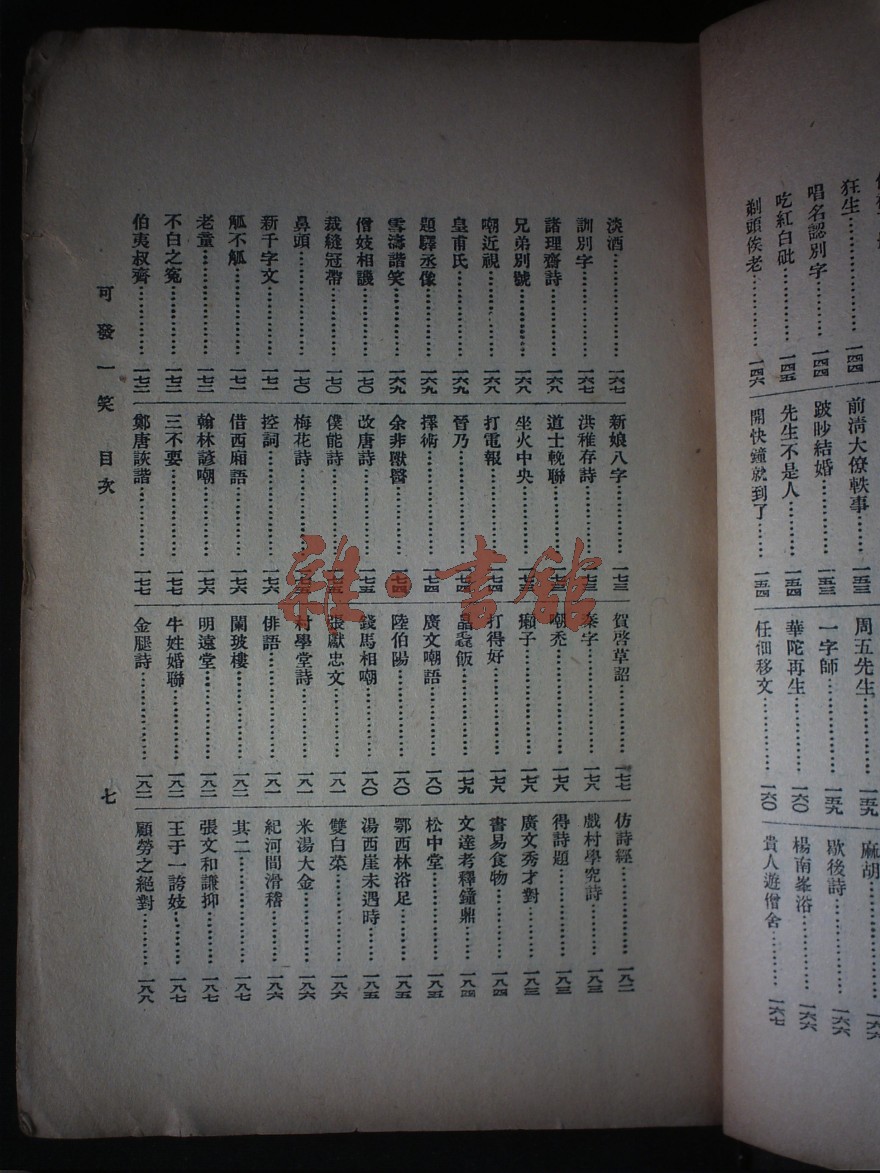 狂生⋯⋯⋯⋯一四四
唱名認別字⋯⋯⋯⋯一四四
吃紅白砒⋯⋯⋯⋯一四五
剃頭侯老⋯⋯⋯⋯一四六
前清大僚軼事⋯⋯⋯⋯一五三
跛眇結婚⋯⋯⋯⋯一五三
先生不是人⋯⋯⋯⋯一五四
開快鐘就到了⋯⋯⋯⋯一五四
周五先生⋯⋯⋯⋯一五九
一字師⋯⋯⋯⋯一五九
華陀再生⋯⋯⋯⋯一六〇
任佃移文⋯⋯⋯⋯一六〇
麻胡⋯⋯⋯⋯一六六
歇後詩⋯⋯⋯⋯一六六
楊南峯浴⋯⋯⋯⋯一六六
貴人遊僧舍⋯⋯⋯⋯一六七
淡酒⋯⋯⋯⋯一六七
訓別字⋯⋯⋯⋯一六七
諸理齋詩⋯⋯⋯⋯一六八
兄弟別號⋯⋯⋯⋯一六八
嘲近視⋯⋯⋯⋯一六八
皇甫氏⋯⋯⋯⋯一六九
題驛丞像⋯⋯⋯⋯一六九
雪濤諧笑⋯⋯⋯⋯一六九
僧妓相譏⋯⋯⋯⋯一七〇
裁縫冠帶⋯⋯⋯⋯一七〇
鼻頭⋯⋯⋯⋯一七〇
新千字文⋯⋯⋯⋯一七一
觚不觚⋯⋯⋯⋯一七一
老童⋯⋯⋯⋯一七二
不白之冤⋯⋯⋯⋯一七二
伯夷叔齊⋯⋯⋯⋯一七二
新娘八字⋯⋯⋯⋯一七三
洪稚存詩⋯⋯⋯⋯一七三
道士輓聯⋯⋯⋯⋯一七三
坐火中央⋯⋯⋯⋯一七三
打電報⋯⋯⋯⋯一七四
晉乃⋯⋯⋯⋯一七四
擇術⋯⋯⋯⋯一七四
余非獸醫⋯⋯⋯⋯一七四
改唐詩⋯⋯⋯⋯一七五
僕能詩⋯⋯⋯⋯一七五
梅花詩⋯⋯⋯⋯一七五
控詞⋯⋯⋯⋯一七六
借西廂語⋯⋯⋯⋯一七六
翰林諺嘲⋯⋯⋯⋯一七六
三不要⋯⋯⋯⋯一七七
鄭唐詼諧⋯⋯⋯⋯一七七
賀啓草詔⋯⋯⋯⋯一七七
字⋯⋯⋯⋯一七八
嘲禿⋯⋯⋯⋯一七八
獺子⋯⋯⋯⋯一七八
打得好⋯⋯⋯⋯一七八
皛毳飯⋯⋯⋯⋯一七九
廣文嘲語⋯⋯⋯⋯一八〇
陸伯陽⋯⋯⋯⋯一八〇
錢馬相嘲⋯⋯⋯⋯一八〇
張獻忠文⋯⋯⋯⋯一八一
村學堂詩⋯⋯⋯⋯一八一
俳語⋯⋯⋯⋯一八一
闌玻樓⋯⋯⋯⋯一八二
明遠堂⋯⋯⋯⋯一八二
牛姓婚聯⋯⋯⋯⋯一八二
金腿詩⋯⋯⋯⋯一八二
仿詩經⋯⋯⋯⋯一八二
戲村學究詩⋯⋯⋯⋯一八三
得詩題⋯⋯⋯⋯一八三
廣文秀才對⋯⋯⋯⋯一八三
書易食物⋯⋯⋯⋯一八四
文達考釋鐘鼎⋯⋯⋯⋯一八四
松中堂⋯⋯⋯⋯一八五
鄂西林浴足⋯⋯⋯⋯一八五
湯西崖未遇時⋯⋯⋯⋯一八五
雙白菜⋯⋯⋯⋯一八六
米湯大金⋯⋯⋯⋯一八六
紀河間滑稽⋯⋯⋯⋯一八六
其二⋯⋯⋯⋯一八七
張文和謙抑⋯⋯⋯⋯一八七
王于一誇妓⋯⋯⋯⋯一八七
顧勞之絕對⋯⋯⋯⋯一八八
可發一笑 目次 七
雜·書館